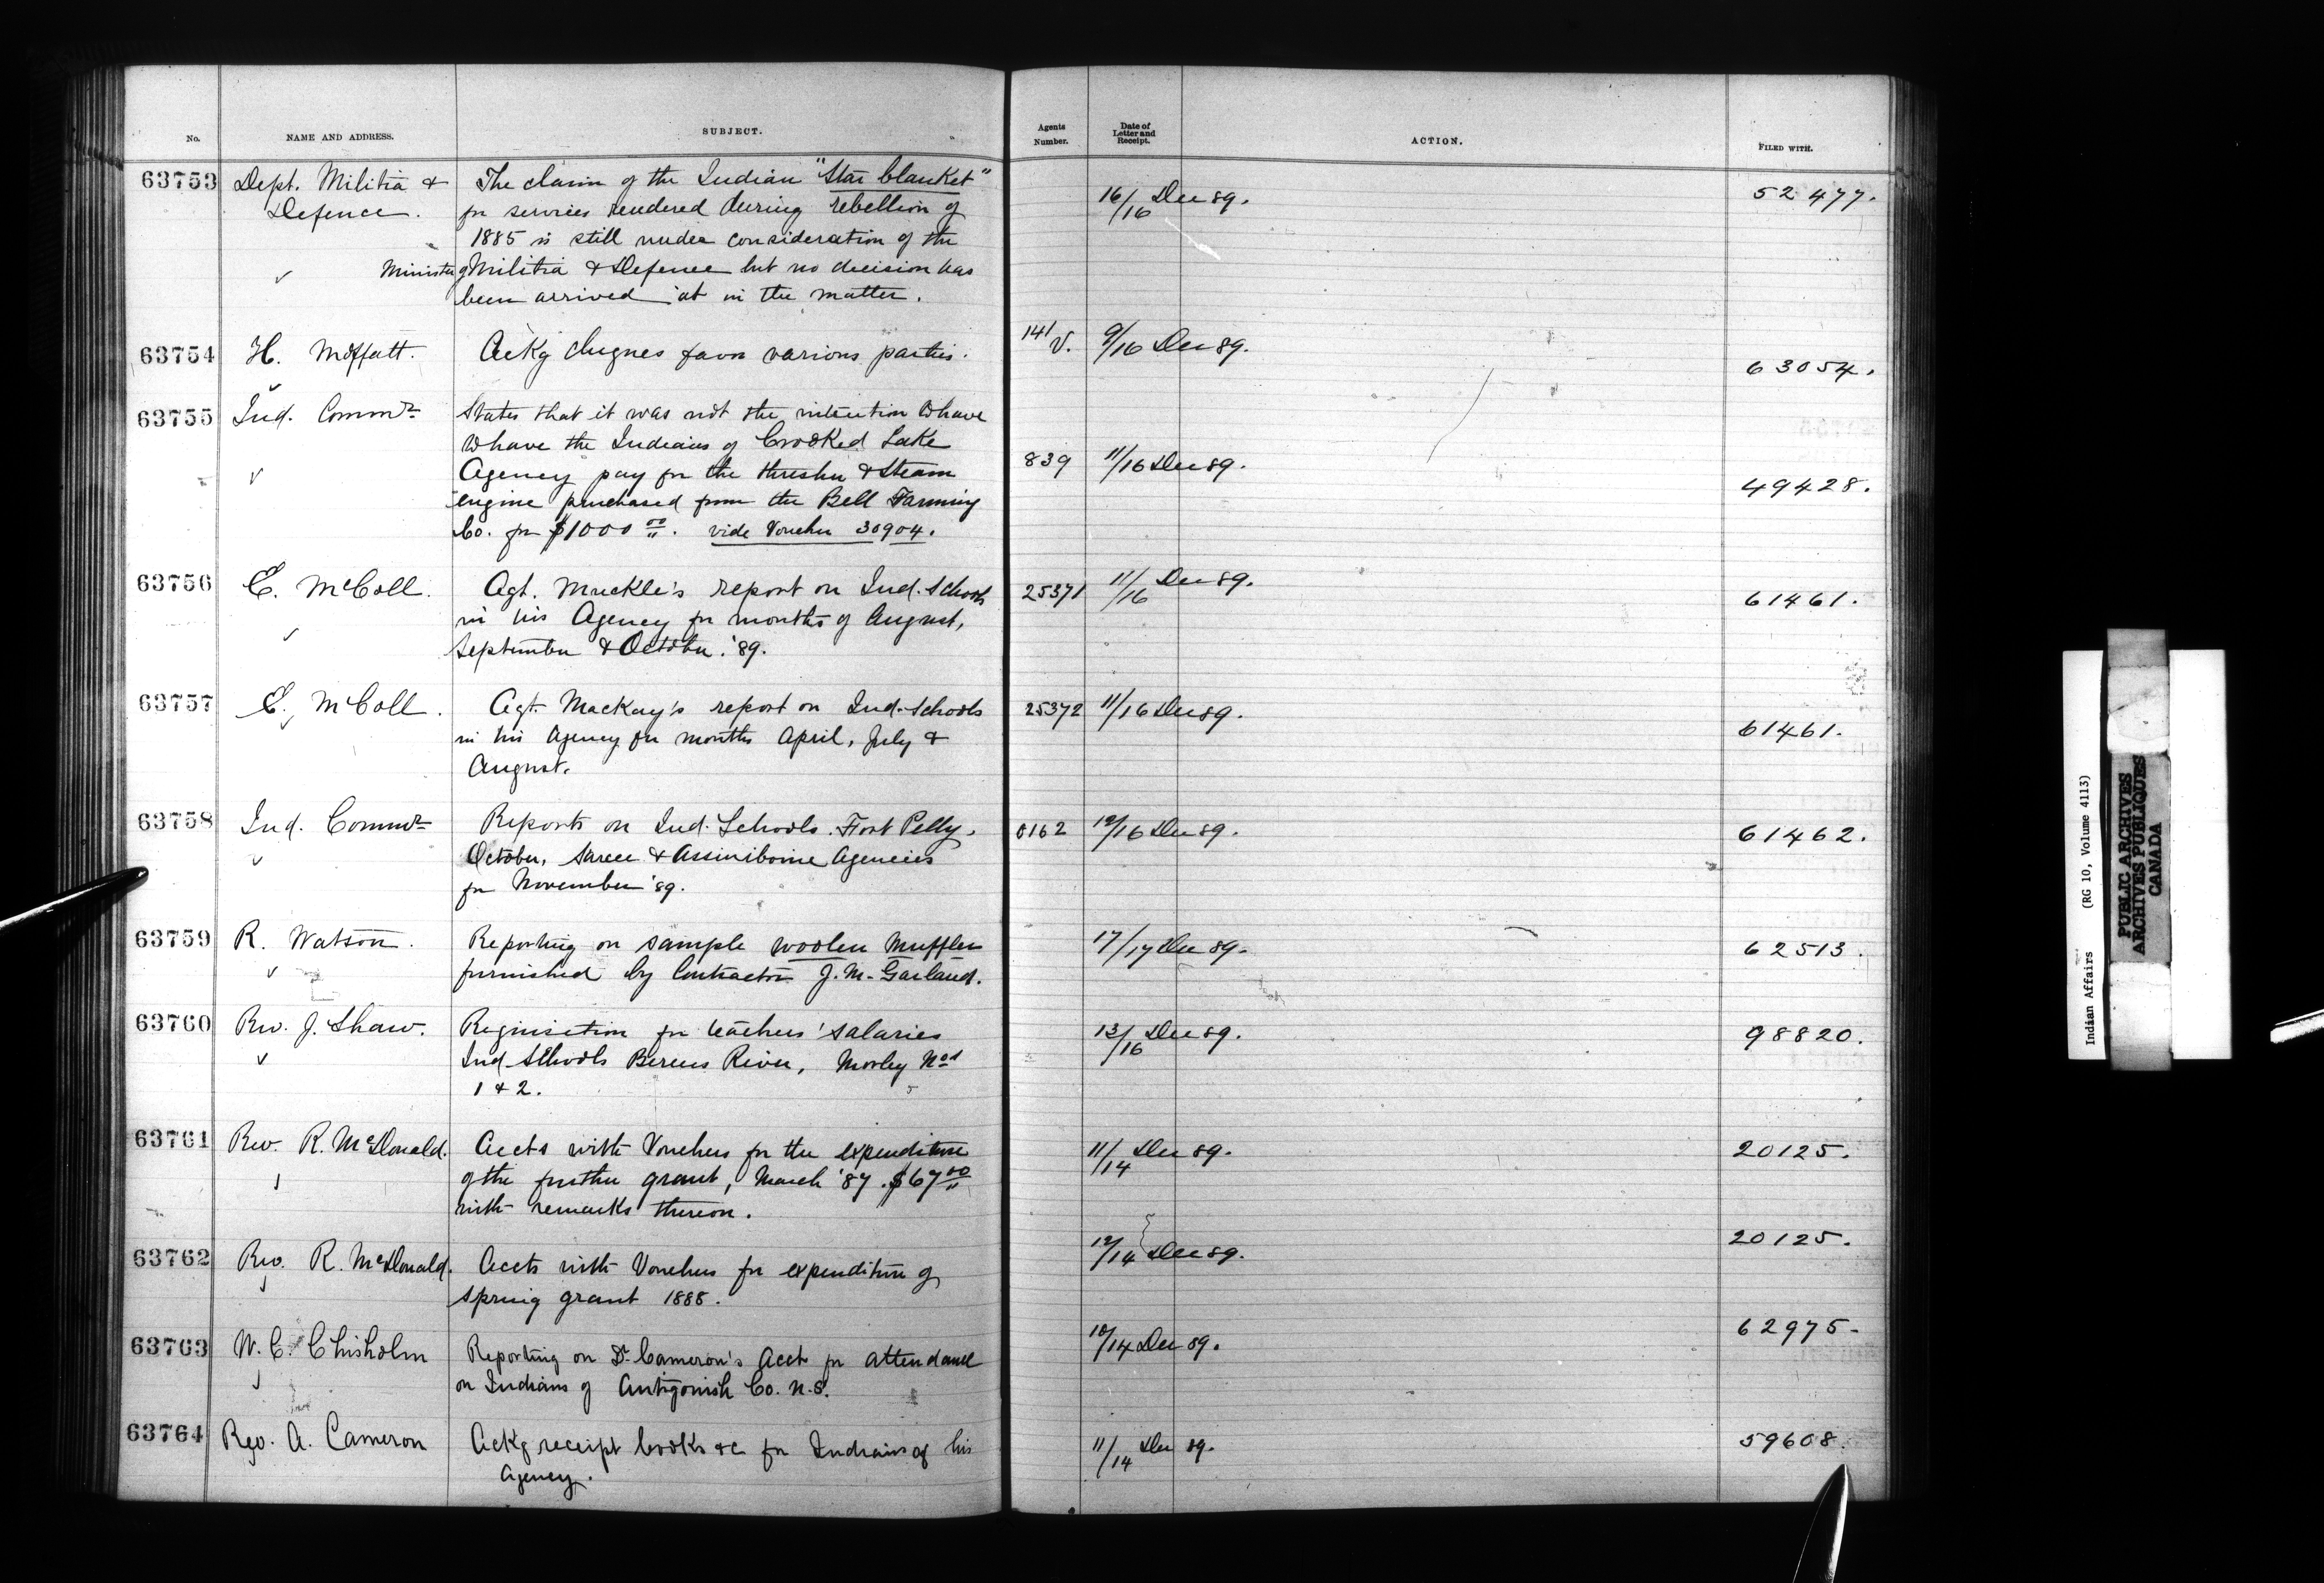 No.
NAME AND ADDRESS.
SUBJECT.
Agents Number.
Date of Letter and Receipt.
ACTION.
FILED WITH.
63753 Dept. Militia & The claim of the Indian "Star blanket" 16/16 Dec 89. 52477.
Defence. for services rendered during rebellion of
1885 is still under consideration of the
✓ Minister of Militia & Defence but no decision has
been arrived at in the matter.
63754 H. Moffatt. Ackg cheques favor various parties. 141/V. 9/16 Dec 89. 63054.
63755 Ind. Commr States that it was not the intention to have
to have the Indians of Crooked Lake
✓ Agency pay for the thresher & Steam 839 11/16 Dec 89. 49428.
engine purchased from the Bell Farming
Co. for $1000 00. vide Voucher 30904.
63756 E. McColl. Agt. Muckle's report on Ind. Schools 25371 11/16 Dec 89. 61461.
✓ in his Agency for months of August,
September & October. '89.
63757 E. McColl. Agt. Mackay's report on Ind. Schools 25372 11/16 Dec 89. 61461.
in his Agency for months April, July &
August.
63758 Ind. Commr Reports on Ind. Schools. Fort Pelly, 0162 12/16 Dec 89. 61462.
✓ October, Sarcee & Assiniboine Agencies
for November '89.
63759 R. Watson. Reporting on sample woolen Muffler 17/17 Dec 89. 62513.
✓ furnished by Contractor J. M. Garland.
63760 Rev. J. Shaw. Requisition for teachers' salaries 13/16 Dec 89. 98820.
✓ Ind. Schools Berens River, Morley Nos
1 & 2.
63761 Rev. R. McDonald. Accts with Vouchers for the expenditure 11/14 Dec 89. 20125.
of the further grant, March '87. $67 00
with remarks thereon.
63762 Rev. R. McDonald. Accts with Vouchers for expenditure of 12/14 Dec 89. 20125.
spring grant 1888.
63763 W. C. Chisholm Reporting on Dr. Cameron's Acct for attendance 10/14 Dec 89. 62975.
on Indians of Antigonish Co. N.S.
63764 Rev. A. Cameron Ackg receipt books &c for Indians of his 11/14 Dec 89. 59608.
Agency.
Indian Affairs (RG 10, Volume 4113)
PUBLIC ARCHIVES
ARCHIVES PUBLIQUES
CANADA